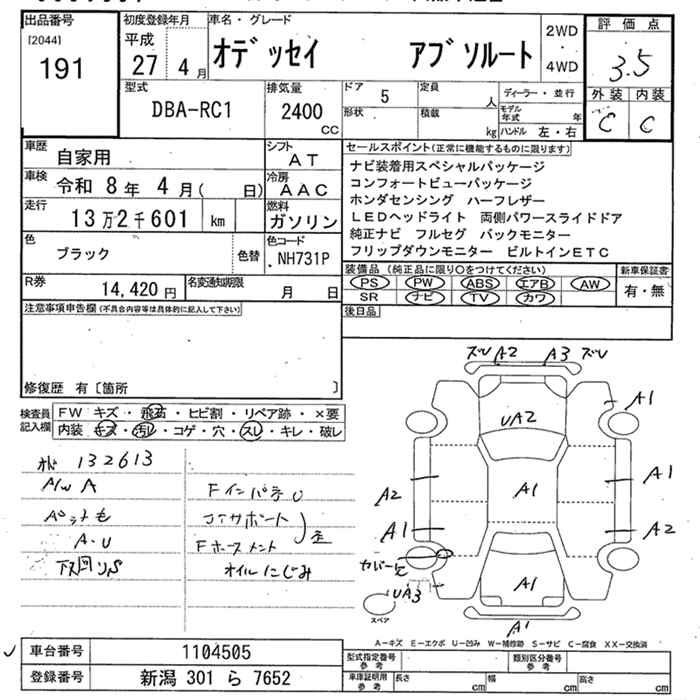 出品番号
[2044]
191
初度登録年月
平成
27 4月
車名・グレード
オデッセイ アブソルート
2WD
・
4WD
評価点
3.5
外装 内装
C C
型式
DBA-RC1
排気量
2400
cc
ドア 5
定員
人
形状
積載
kg
ディーラー・並行
モデル年式 年
ハンドル 左・右
車歴
自家用
シフト
AT
車検
令和 8年 4月( 日)
冷房
AAC
走行
13万2千601 km
燃料
ガソリン
色
ブラック
色替
色コード
NH731P
R券
14,420円
名変通知期限
月 日
セールスポイント(正常に機能するものに限ります)
ナビ装着用スペシャルパッケージ
コンフォートビューパッケージ
ホンダセンシング ハーフレザー
LEDヘッドライト 両側パワースライドドア
純正ナビ フルセグ バックモニター
フリップダウンモニター ビルトインETC
装備品(純正品に限り○をつけてください)
PS PW ABS エアB AW
SR ナビ TV カワ
新車保証書
有・無
後日品
注意事項申告欄(不具合内容等は具体的に記入して下さい)
修復歴 有〔箇所 〕
検査員
記入欄
FW キズ・飛石・ヒビ割・リペア跡・×要
内装 キズ・汚れ・コゲ・穴・スレ・キレ・破レ
132613
A/W A
A・U
下回りS
Fインパネ U
コアサポート
Fホースメント
オイルにじみ
ズレ A2 A3 ズレ
A1
UA2
A1
A2
A1
A1
A2
カバー欠
UA3
A1
A1
スペア
A-キズ E-エクボ U-凹み W-補修跡 S-サビ C-腐食 XX-交換済
車台番号
1104505
登録番号
新潟 301 ら 7652
型式指定番号
参考
類別区分番号
参考
車庫証明用
参考
長さ cm
幅 cm
高さ cm